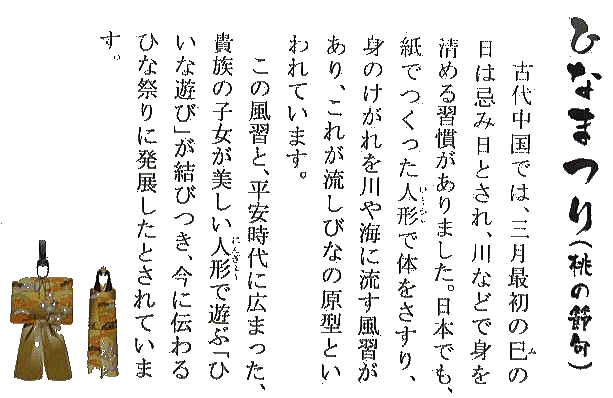 ひなまつり（桃の節句）
古代中国では、三月最初の巳の
日は忌み日とされ、川などで身を
清める習慣がありました。日本でも、
紙でつくった人形で体をさすり、
身のけがれを川や海に流す風習が
あり、これが流しびなの原型とい
われています。
この風習と、平安時代に広まった、
貴族の子女が美しい人形で遊ぶ「ひ
いな遊び」が結びつき、今に伝わる
ひな祭りに発展したとされていま
す。